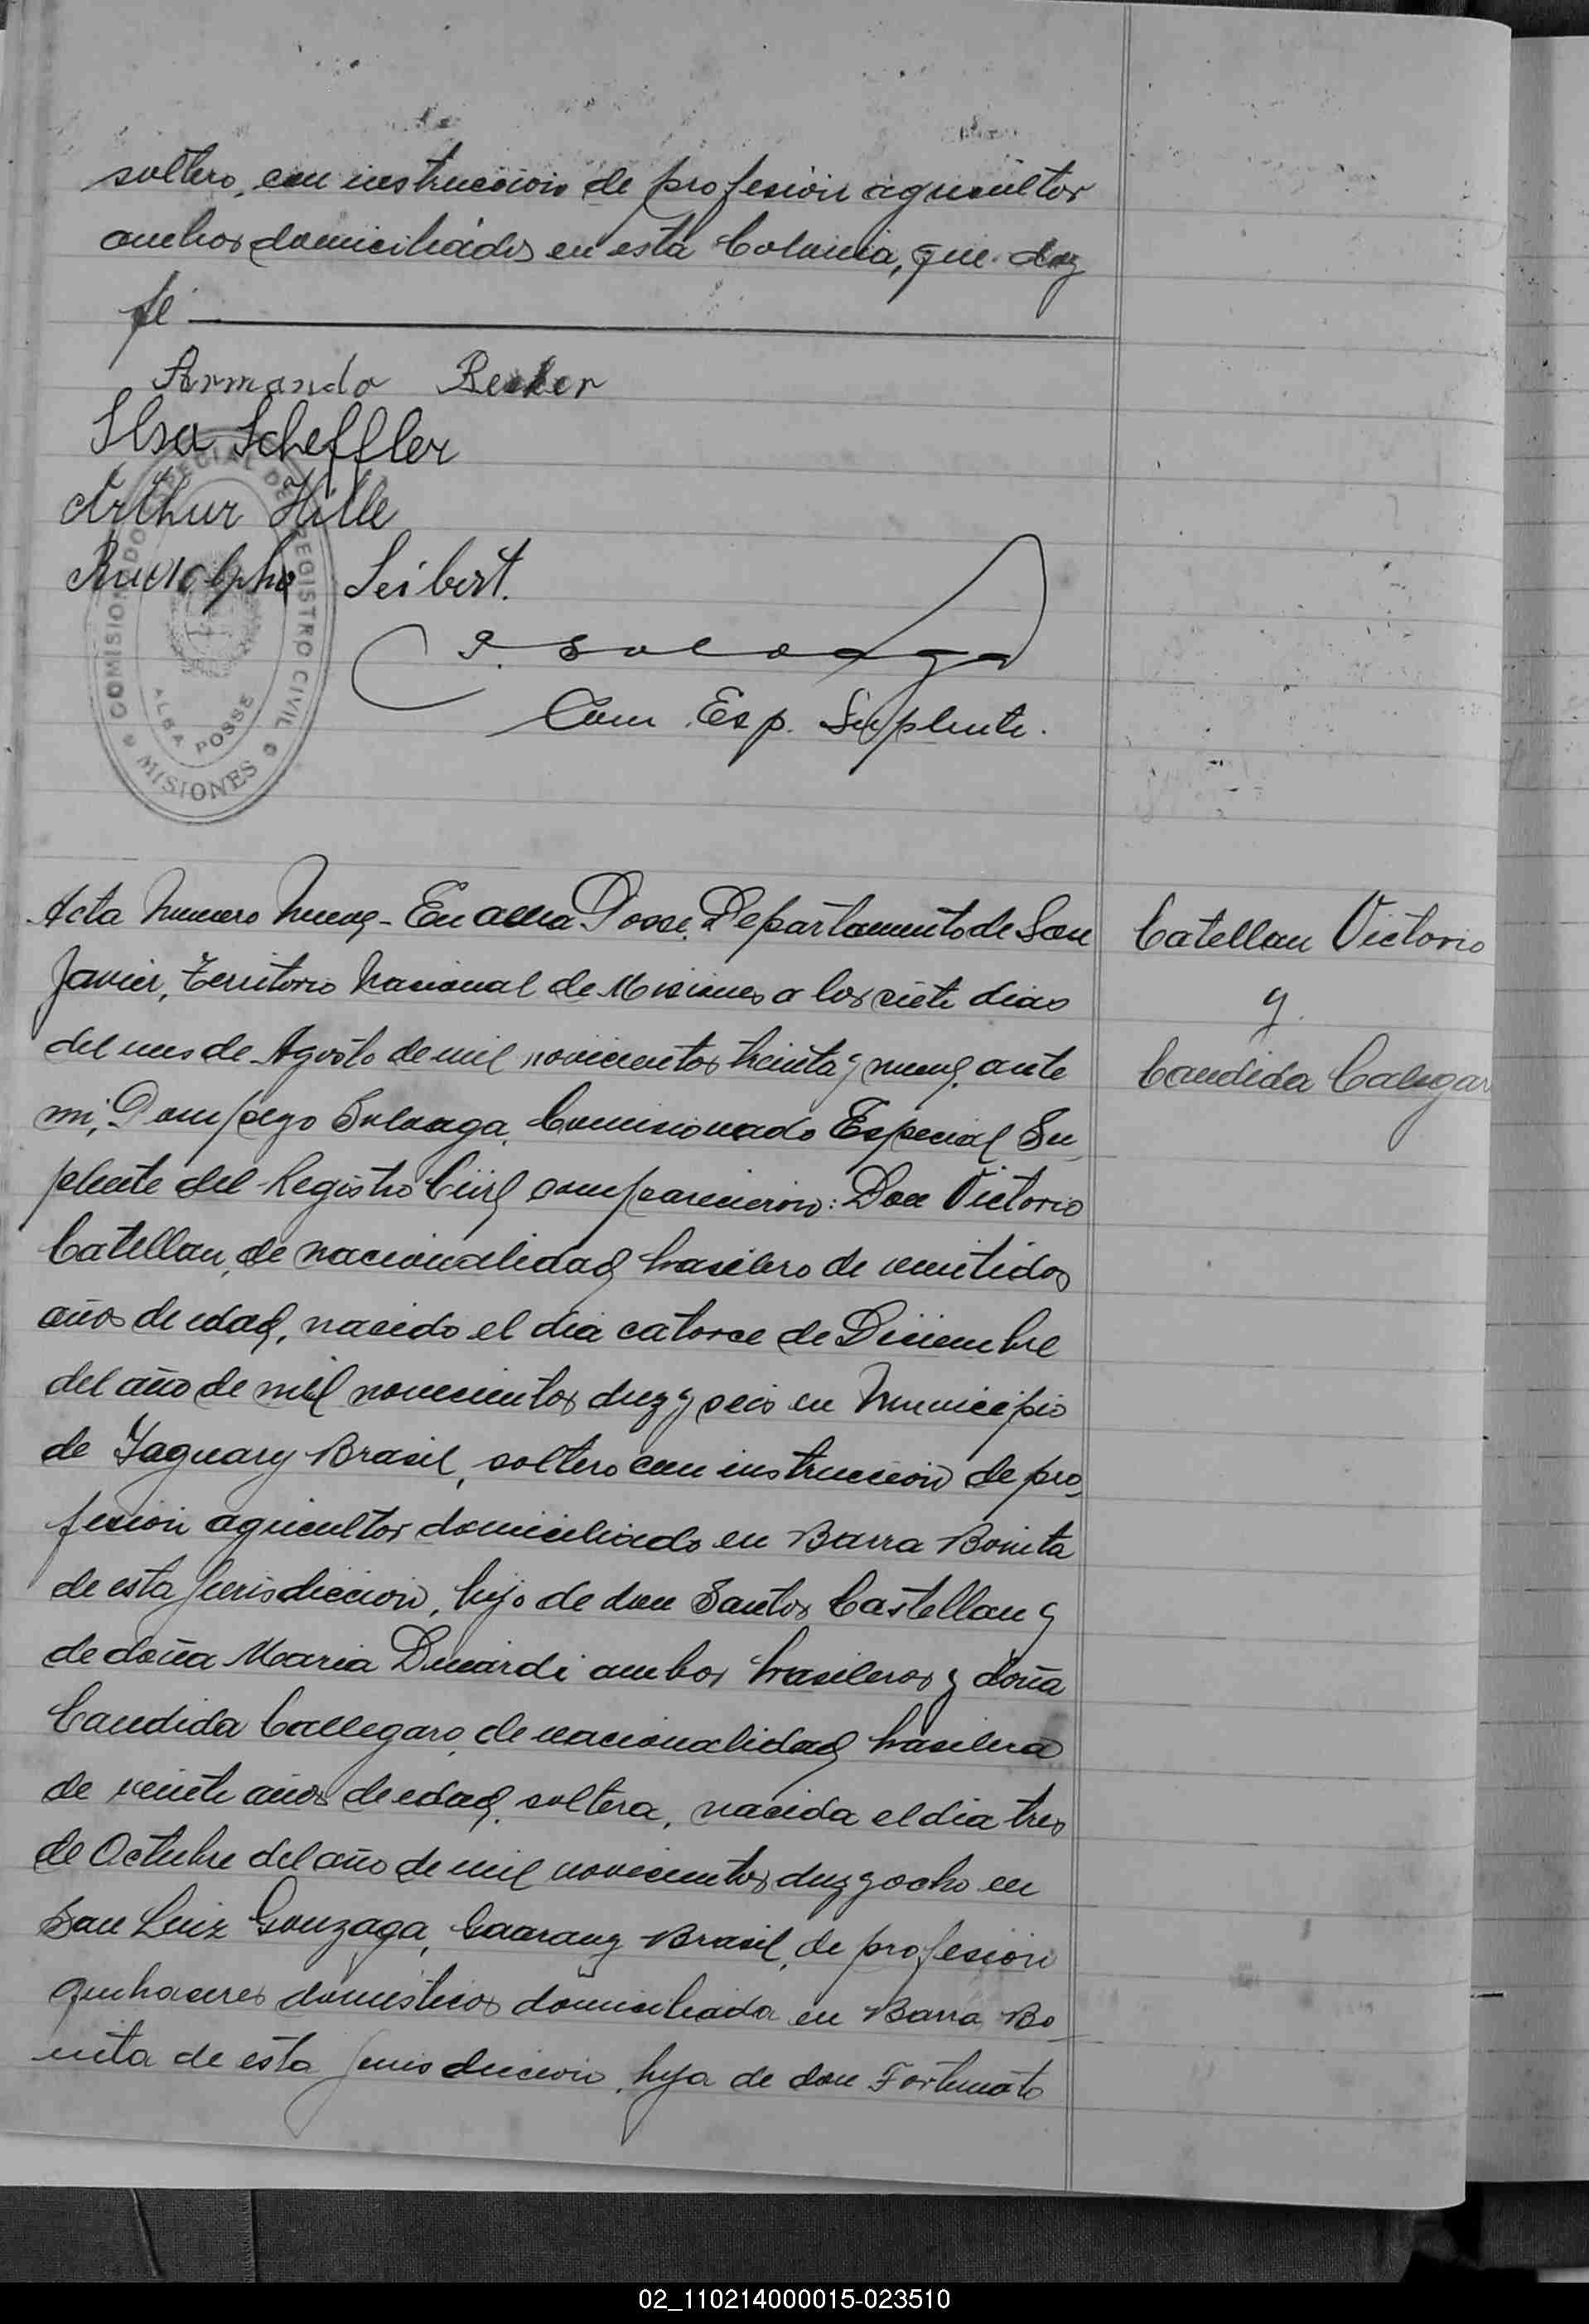 soltero, con instruccion de profesion agricultor
ambos domiciliados en esta Colonia, que doy
fe
Armando Becker
Ilsa Scheffler
Arthur Hille
Rudolpho Seibert.
P. Soloaga
Com. Esp. Suplente.
COMISIONADO ESPECIAL DEL REGISTRO CIVIL
ALBA POSSE
MISIONES
Acta Numero Nueve - En Alba Posse, Departamento de San
Javier, Territorio Nacional de Misiones a los siete dias
del mes de Agosto de mil novecientos treinta y nueve, ante
mi, Pompeyo Soloaga, Comisionado Especial Su
plente del Registro Civil comparecieron: Don Victorio
Catellan, de nacionalidad brasilero de veintidos
años de edad, nacido el dia catorce de Diciembre
del año de mil novecientos diez y seis en Municipio
de Jaguary Brasil, soltero con instruccion de pro
fesion agricultor domiciliado en Barra Bonita
de esta Jurisdiccion, hijo de don Santos Castellan y
de doña Maria Dinardi ambos brasileros y doña
Candida Callegaro, de nacionalidad brasilera
de veinte años de edad, soltera, nacida el dia tres
de Octubre del año de mil novecientos diez y ocho en
San Luiz Gonzaga, Brasil, de profesion
quehaceres domesticos domiciliada en Barra Bo
nita de esta Jurisdiccion, hija de don Fortunato
Catellan Victorio
y
Candida Calegar
02_110214000015-023510